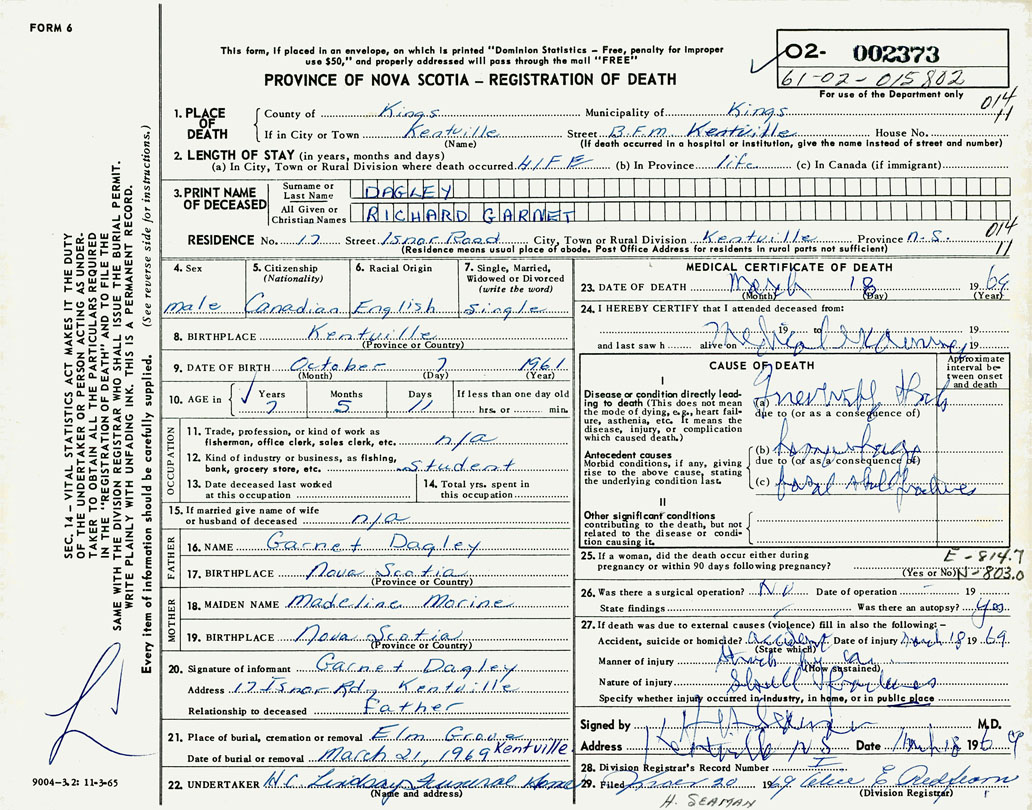 FORM 6
This form, if placed in an envelope, on which is printed "Dominion Statistics – Free, penalty for improper
use $50," and properly addressed will pass through the mail "FREE"
PROVINCE OF NOVA SCOTIA – REGISTRATION OF DEATH
02- 002373
61-02-015802
For use of the Department only
014
11
1. PLACE OF DEATH
County of Kings Municipality of Kings
If in City or Town Kentville Street B.F.M. Kentville House No.
(Name) (If death occurred in a hospital or institution, give the name instead of street and number)
2. LENGTH OF STAY (in years, months and days)
(a) In City, Town or Rural Division where death occurred LIFE (b) In Province life (c) In Canada (if immigrant)
3. PRINT NAME OF DECEASED
Surname or Last Name DAGLEY
All Given or Christian Names RICHARD GARNET
014
11
RESIDENCE No. 17 Street Isnor Road City, Town or Rural Division Kentville Province N.S.
(Residence means usual place of abode. Post Office Address for residents in rural parts not sufficient)
4. Sex male
5. Citizenship (Nationality) Canadian
6. Racial Origin English
7. Single, Married, Widowed or Divorced (write the word) Single
8. BIRTHPLACE Kentville
(Province or Country)
9. DATE OF BIRTH October 7 1961
(Month) (Day) (Year)
10. AGE in Years 7 Months 5 Days 11 If less than one day old hrs. or min.
OCCUPATION
11. Trade, profession, or kind of work as fisherman, office clerk, sales clerk, etc. n/a
12. Kind of industry or business, as fishing, bank, grocery store, etc. student
13. Date deceased last worked at this occupation
14. Total yrs. spent in this occupation
15. If married give name of wife or husband of deceased n/a
FATHER
16. NAME Garnet Dagley
17. BIRTHPLACE Nova Scotia
(Province or Country)
MOTHER
18. MAIDEN NAME Madeline Morine
19. BIRTHPLACE Nova Scotia
(Province or Country)
20. Signature of informant Garnet Dagley
Address 17 Isnor Rd, Kentville
Relationship to deceased Father
21. Place of burial, cremation or removal Elm Grove
Date of burial or removal March 21, 1969 Kentville
22. UNDERTAKER H.C. Lindsay Funeral Home
(Name and address)
MEDICAL CERTIFICATE OF DEATH
23. DATE OF DEATH March 18 1969
(Month) (Day) (Year)
24. I HEREBY CERTIFY that I attended deceased from:
19 to 19
and last saw h alive on 19
Medical examiner
CAUSE OF DEATH
Approximate interval between onset and death
I
Disease or condition directly leading to death (This does not mean the mode of dying, e.g., heart failure, asthenia, etc. It means the disease, injury, or complication which caused death.)
(a)
due to (or as a consequence of)
Antecedent causes
Morbid conditions, if any, giving rise to the above cause, stating the underlying condition last.
(b) hemorrhage
due to (or as a consequence of)
(c) basal skull fractures
II
Other significant conditions
contributing to the death, but not related to the disease or condition causing it.
25. If a woman, did the death occur either during pregnancy or within 90 days following pregnancy? (Yes or No)
E - 814.7
N - 803.0
26. Was there a surgical operation? No Date of operation 19
State findings Was there an autopsy? Yes
27. If death was due to external causes (violence) fill in also the following:–
Accident, suicide or homicide? accident Date of injury March 18 1969
(State which)
Manner of injury Struck by car
(How sustained)
Nature of injury Skull fractures
Specify whether injury occurred in industry, in home, or in public place
Signed by M.D.
Address Kentville N S Date March 18 1969
28. Division Registrar's Record Number
29. Filed 20 1969
(Division Registrar)
H. SEAMAN
SEC. 14 – VITAL STATISTICS ACT MAKES IT THE DUTY
OF THE UNDERTAKER OR PERSON ACTING AS UNDER-
TAKER TO OBTAIN ALL THE PARTICULARS REQUIRED
IN THE "REGISTRATION OF DEATH" AND TO FILE THE
SAME WITH THE DIVISION REGISTRAR WHO SHALL ISSUE THE BURIAL PERMIT.
WRITE PLAINLY WITH UNFADING INK. THIS IS A PERMANENT RECORD.
Every item of information should be carefully supplied. (See reverse side for instructions.)
9004-3.2: 11-3-65